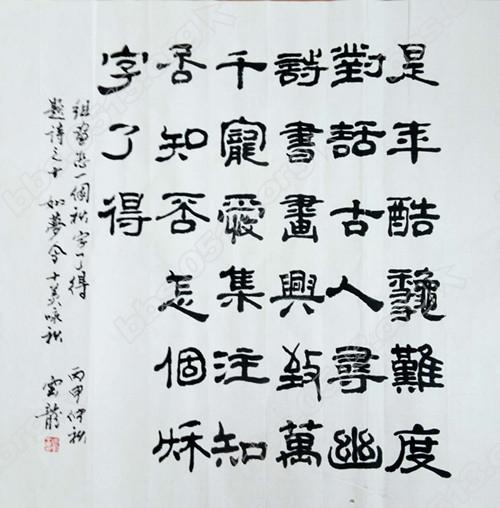 是年酷難度
對話古人尋幽
詩書畫興致萬
千寵愛集注知
否知否怎個秌
字了得
組畫怎一個秋字了得
題詩之十 如夢令 十美咏秋
丙申仲秋
雲龍